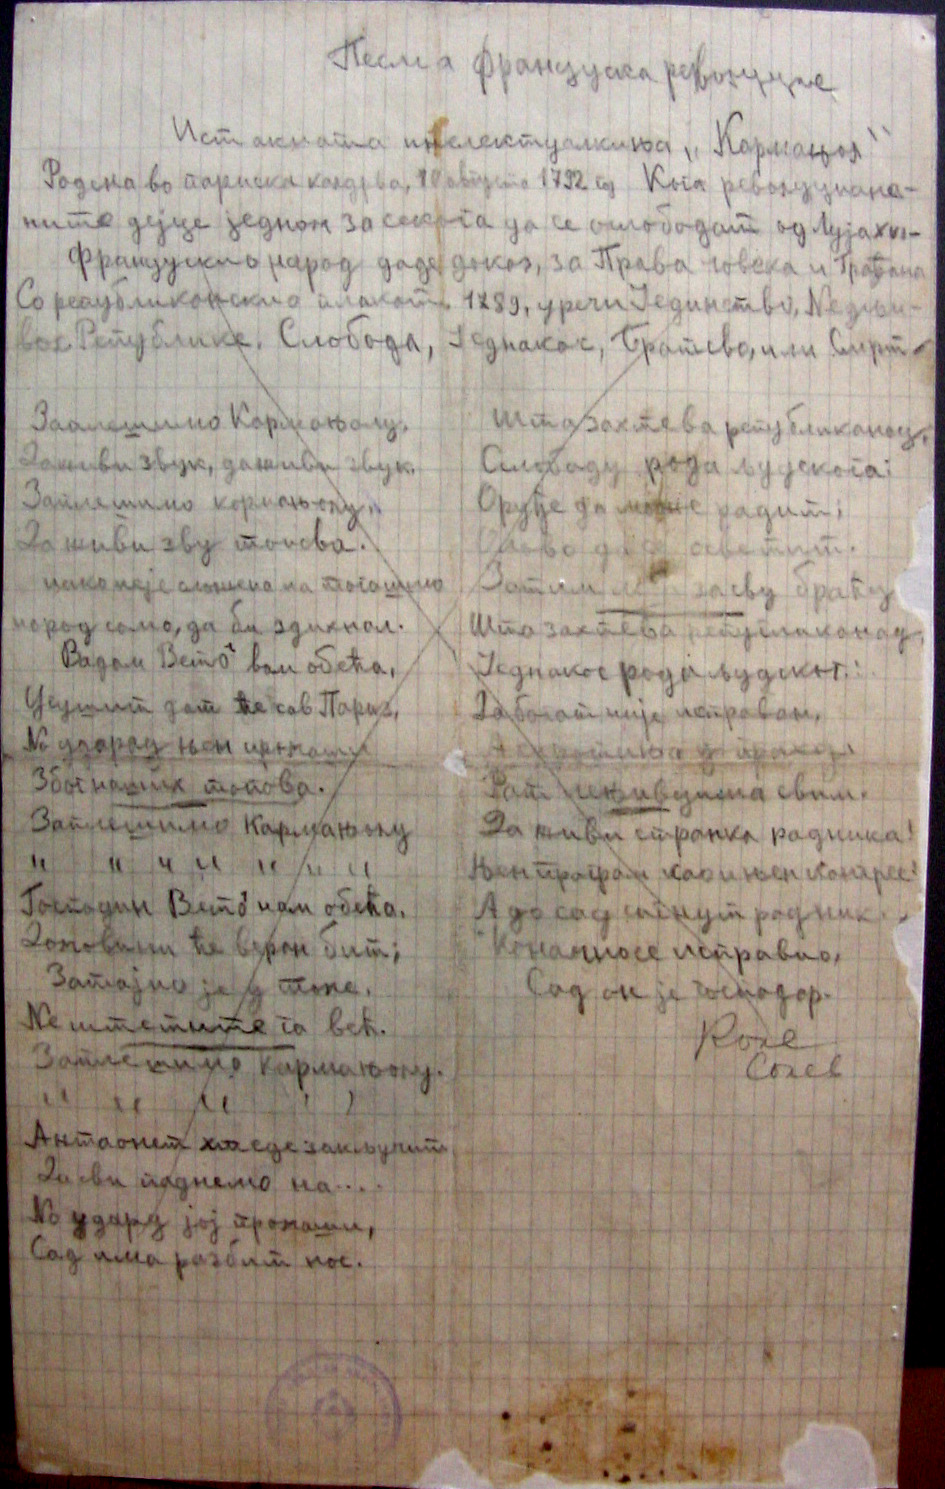 Песма француска револуције
Истакната интелектуалкиња „Кармањол“
Родена во париска 10 августа 1792 год Кога револуциона-
ните дејце једном за секога да се ослободат од Луја XVI-
Францускио народ даде доказ, за Права човека и Грађана
Со републиканскио плакати 1789, уречи Јединство, Nедљи-
вос Републике. Слобода, Једнакос, Братсво, или Смрт
Заплешимо Кармањолу,
Да живи звук, да живи звук.
Заплешимо кармањолу,
Да живи зву топова.
народ само, да би здихнал.
Мадам Вето вам обећа,
Угушит дат ће сав Париз,
No ударац њен промаши
Због наших топова.
Заплешимо Кармањолу
" " " " " " "
Господин Вето нам обећа,
Домовини ће веран бит;
Затајио је у томе,
Nе штетите га већ.
Заплешимо кармањолу.
" " " " "
Антаонет хтеде закључит
Да сви паднемо на....
No ударц јој промаши,
Сад има разбит нос.
Шта захтева републиканац,
Слободу рода људскога:
Оруђе да може радит;
да се осветит.
Затим за сву браћу
Шта захтева републиканац,
Једнакос рода људског:
Да богат није исправан,
Рат неживцима свим.
Да живи странка радника!
Њен програм као и њен Конгрес!
А до сад сагнут радник
Коначно се исправио,
Сад он је господар.
Коле
Солев